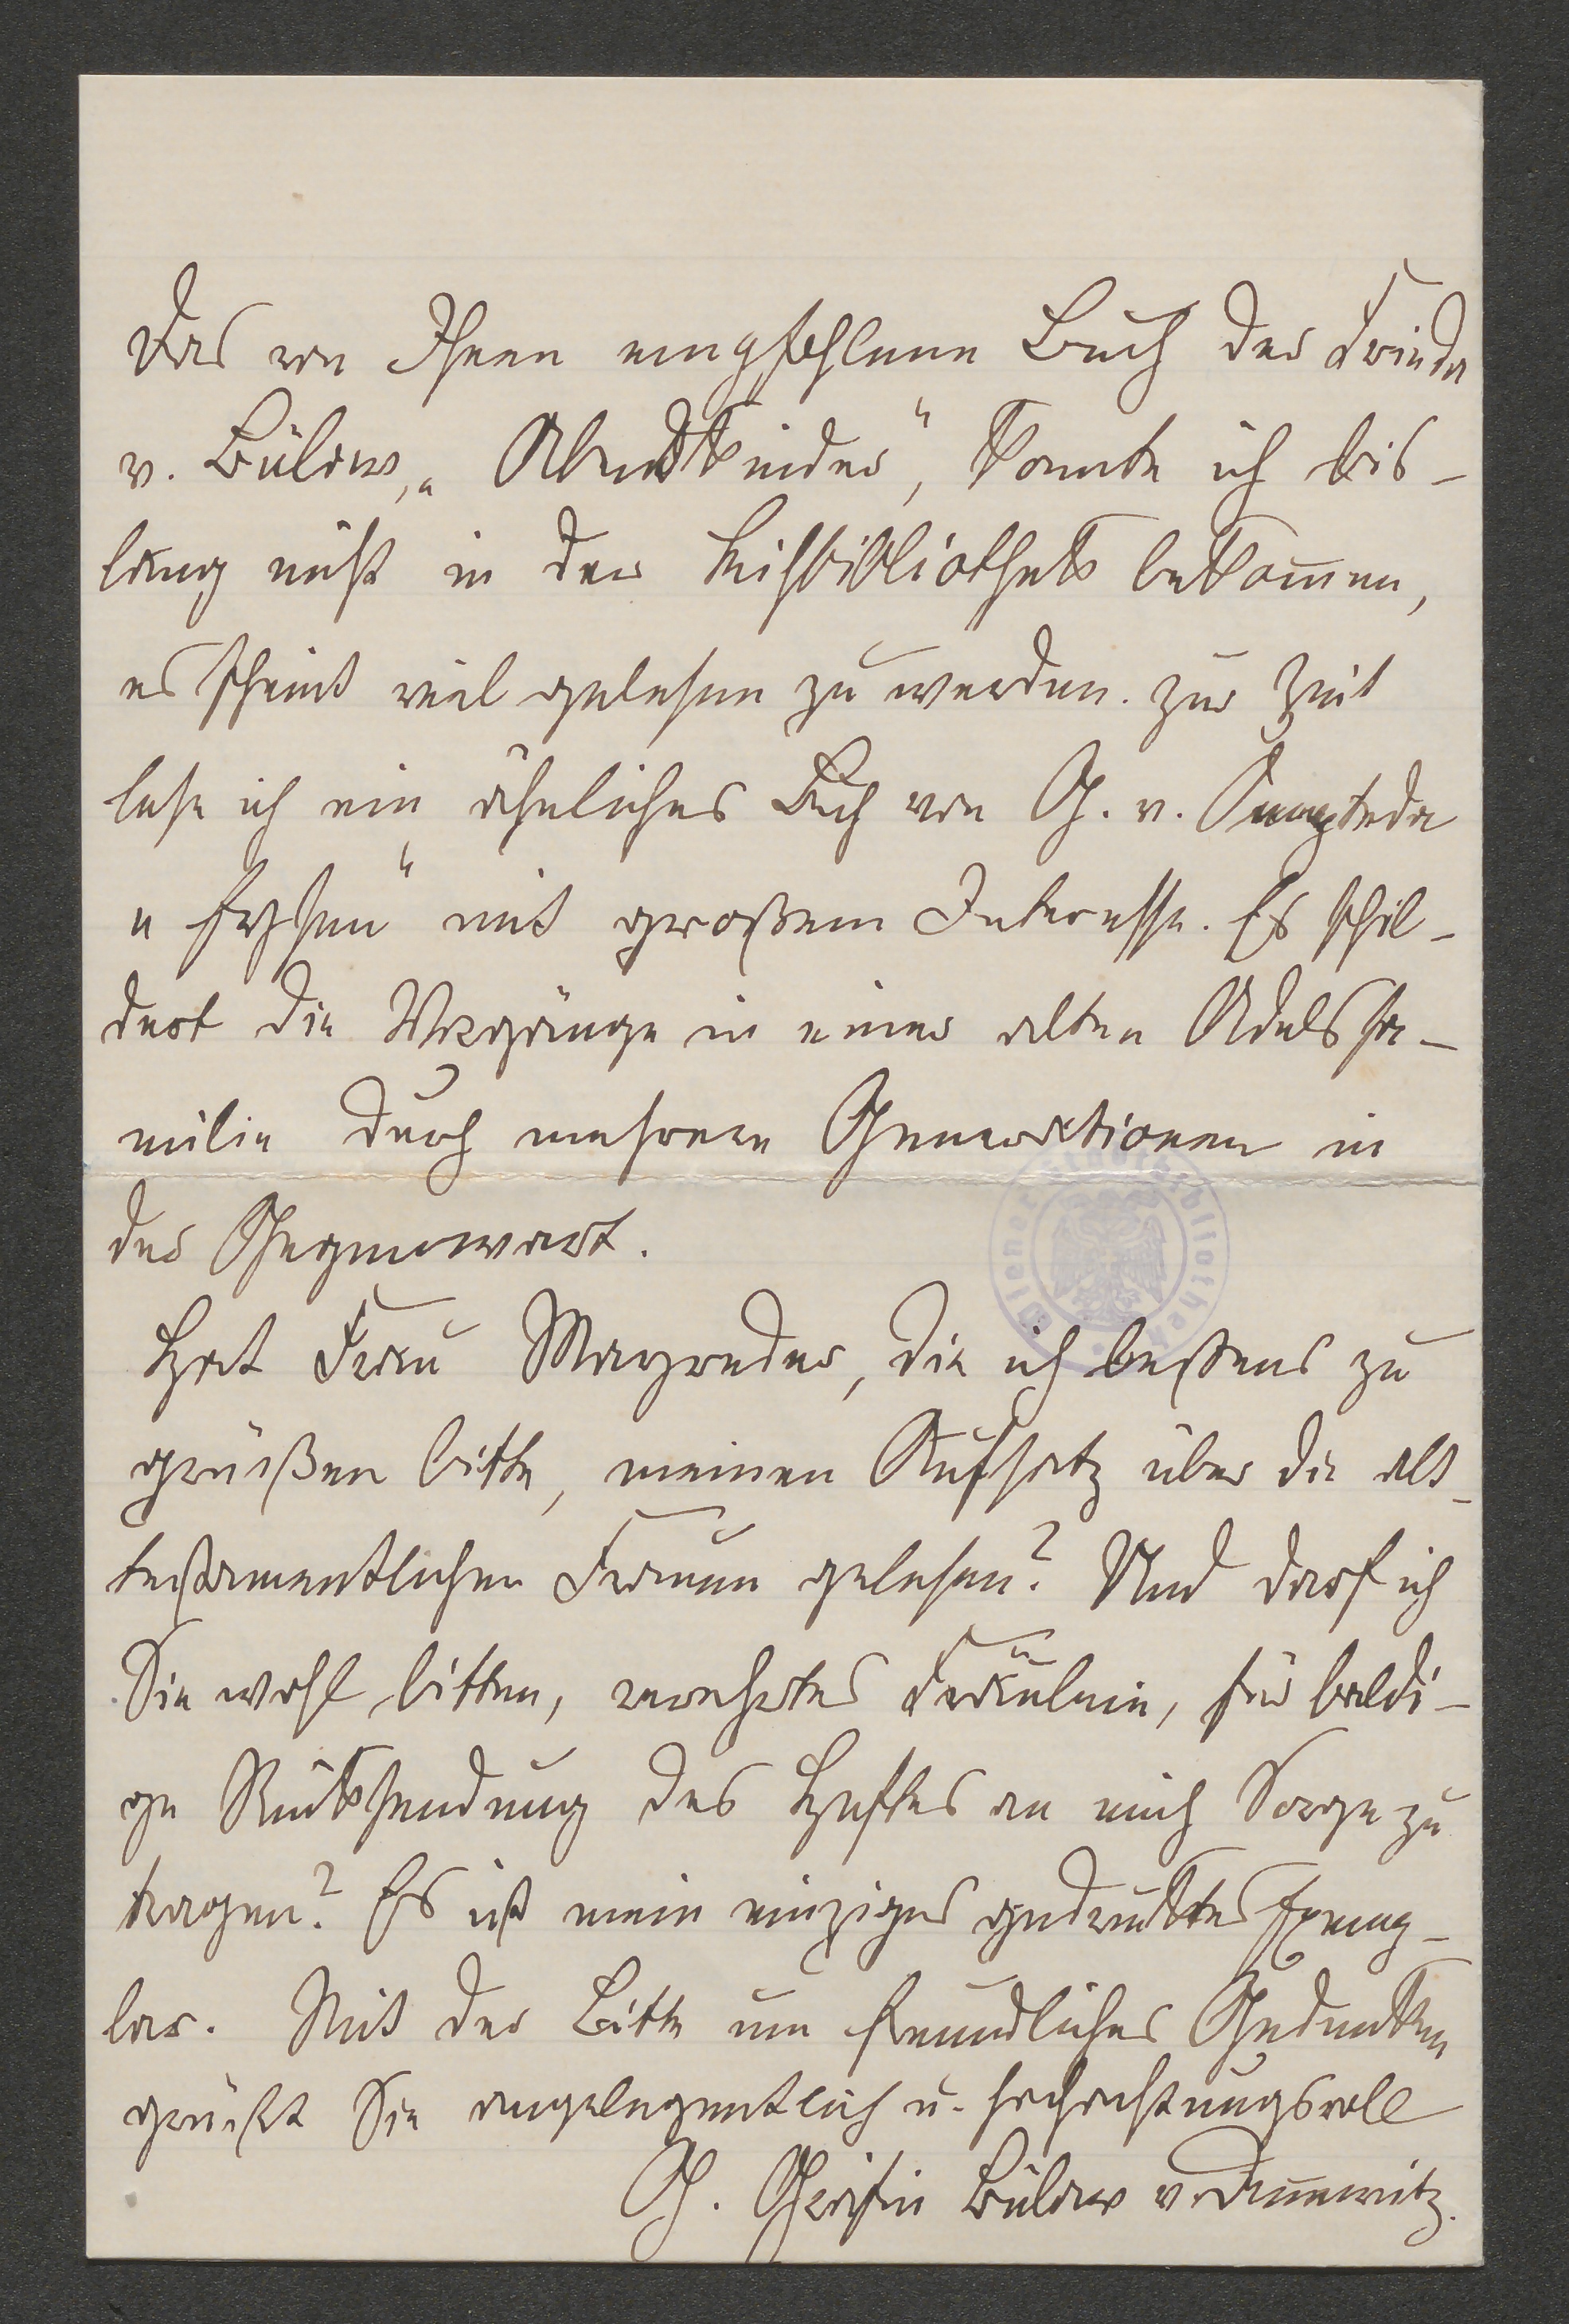 Das von Ihnen empfohlene Buch der Frieda
v. Bülow, „Abendkinder“, konnte ich bis-
lang nicht in der Leihbibliothek bekom̅en,
es scheint viel gelesen zu werden. Zur Zeit
lese ich ein ähnliches Buch von G. v. Ompteda
„Eysen“ mit großem Interesse. Es schil-
dert die Vorgänge in einer alten Adelsfa-
milie durch mehrere Generationen in
der Gegenwart.
Hat Frau Mayreder, die ich bestens zu
grüßen bitte, meinen Aufsatz über die alt-
testamentlichen Frauen gelesen? Und darf ich
Sie wohl bitten, verehrtes Fräulein, für baldi-
ge Rücksendung des Heftes an mich Sorge zu
tragen? Es ist mein einziges gedrucktes Exemp-
lar. Mit der Bitte um freundliches Gedenken
grüßt Sie angelegentlich u. hochachtungsvoll
G. Gräfin Bülow v. Dennewitz.
Wiener Stadtbibliothek